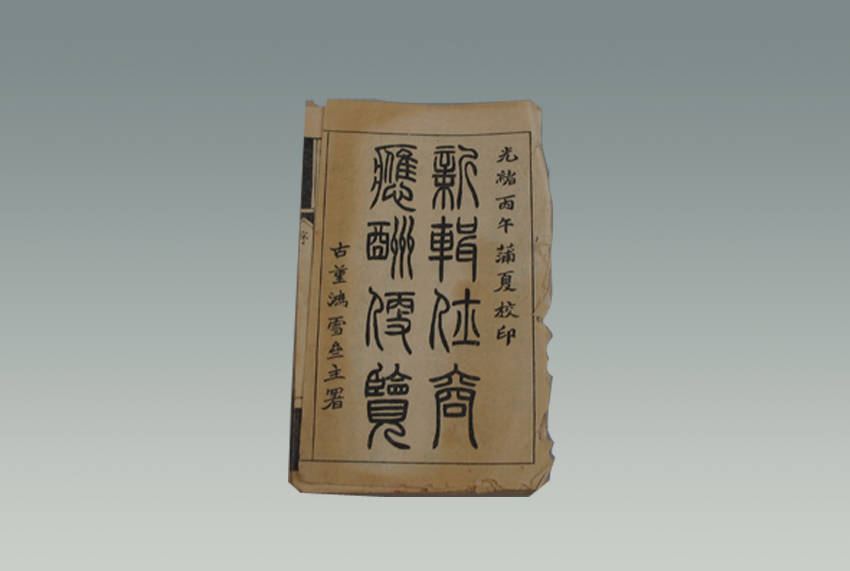 光緒丙午蒲夏校印
新輯仕商
應酬便覽
古堇鴻雪盦主署
序